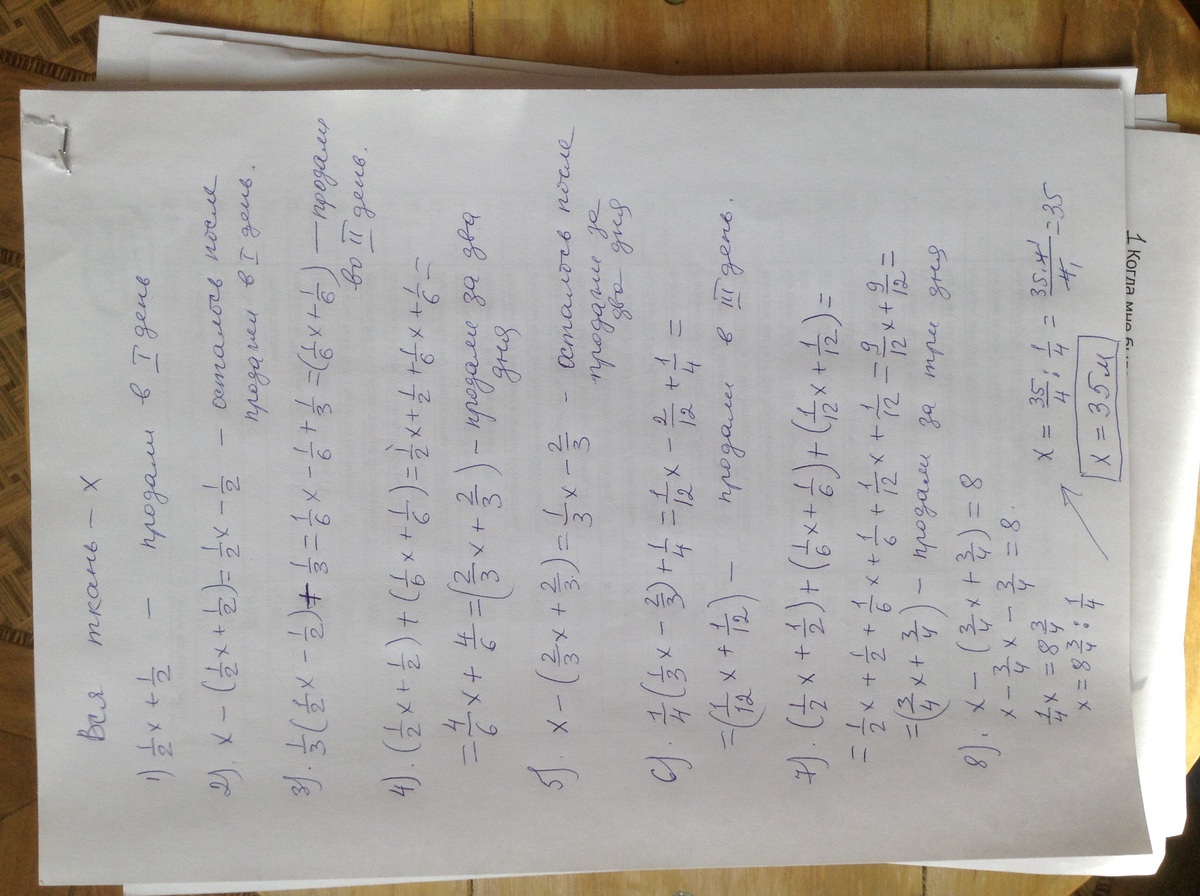 Вся ткань – x
1) 1/2 x + 1/2 – продали в I день
2). x – (1/2 x + 1/2) = 1/2 x – 1/2 – осталось после
продажи в I день.
3). 1/3 (1/2 x – 1/2) + 1/3 = 1/6 x – 1/6 + 1/3 = (1/6 x + 1/6) — продали
во II день.
4). (1/2 x + 1/2) + (1/6 x + 1/6) = 1/2 x + 1/2 + 1/6 x + 1/6 =
= 4/6 x + 4/6 = (2/3 x + 2/3) – продали за два
дня
5). x – (2/3 x + 2/3) = 1/3 x – 2/3 – осталось после
продажи за
два дня
6). 1/4 (1/3 x – 2/3) + 1/4 = 1/12 x – 2/12 + 1/4 =
= (1/12 x + 1/12) – продали в III день.
7). (1/2 x + 1/2) + (1/6 x + 1/6) + (1/12 x + 1/12) =
= 1/2 x + 1/2 + 1/6 x + 1/6 + 1/12 x + 1/12 = 9/12 x + 9/12 =
= (3/4 x + 3/4) – продали за три дня
8). x – (3/4 x + 3/4) = 8
x – 3/4 x – 3/4 = 8.
1/4 x = 8 3/4
x = 8 3/4 : 1/4
x = 35/4 : 1/4 = 35·4/4 = 35
x = 35 м
1 Когда мне